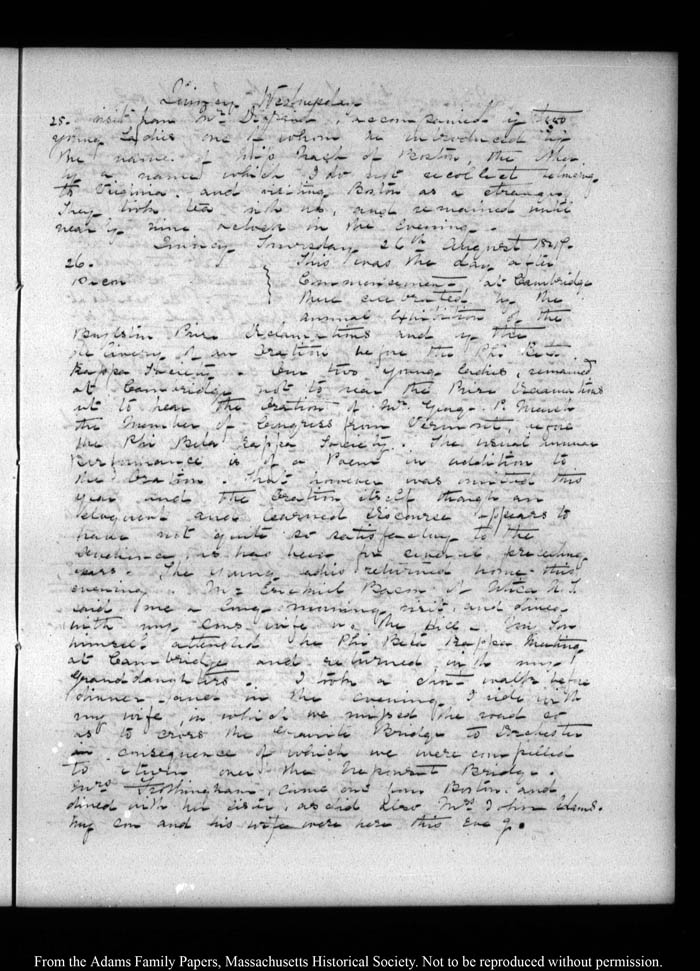 Quincy Wednesday
25. visit from Mr Degrand, accompanied by two 550
young Ladies one of whom he introduced by
the name of Miss Nash of Boston, the other
by a name which I do not recollect belonging
to Virginia and visiting Boston as a stranger
They took tea with us, and remained until
nearly nine o'clock in the Evening.
Quincy Thursday 26th August 1847.
26. This was the day after
Bacon Commencement, at Cambridge
there celebrated by the
annual exhibition of the
Boylston Prize Declamations and by the
delivery of an Oration before the Phi Beta
Kappa Society. Our two young Ladies, remained
at Cambridge not to hear the Prize Declamations
but to hear the Oration of Mr. George P. Marsh
the Member of Congress from Vermont, before
the Phi Beta Kappa Society. The usual annual
Performance is of a Poem in addition to
the Oration. That however was omitted this
year and the Oration itself though an
eloquent and learned discourse appears to
have not quite so satisfactory to the
audience as has been for several preceding
years. The young ladies returned home this
evening. Mr Ezekiel Bacon of Utica N.Y.
paid me a long morning visit, and dined
with my Sons wife on the hill. My Son
himself attended the Phi Beta Kappa Meeting
at Cambridge and returned with my
Granddaughters. I took a short walk before
dinner and in the evening I ride with
my wife, in which we missed the road so
as to cross the Granite Bridge to Dorchester
in consequence of which we were compelled
to return over the Neponset Bridge.
Mrs Frothingham, came out from Boston, and
dined with her sister, as did also Mrs John Adams.
My son and his wife were here this Eve g.
From the Adams Family Papers, Massachusetts Historical Society. Not to be reproduced without permission.